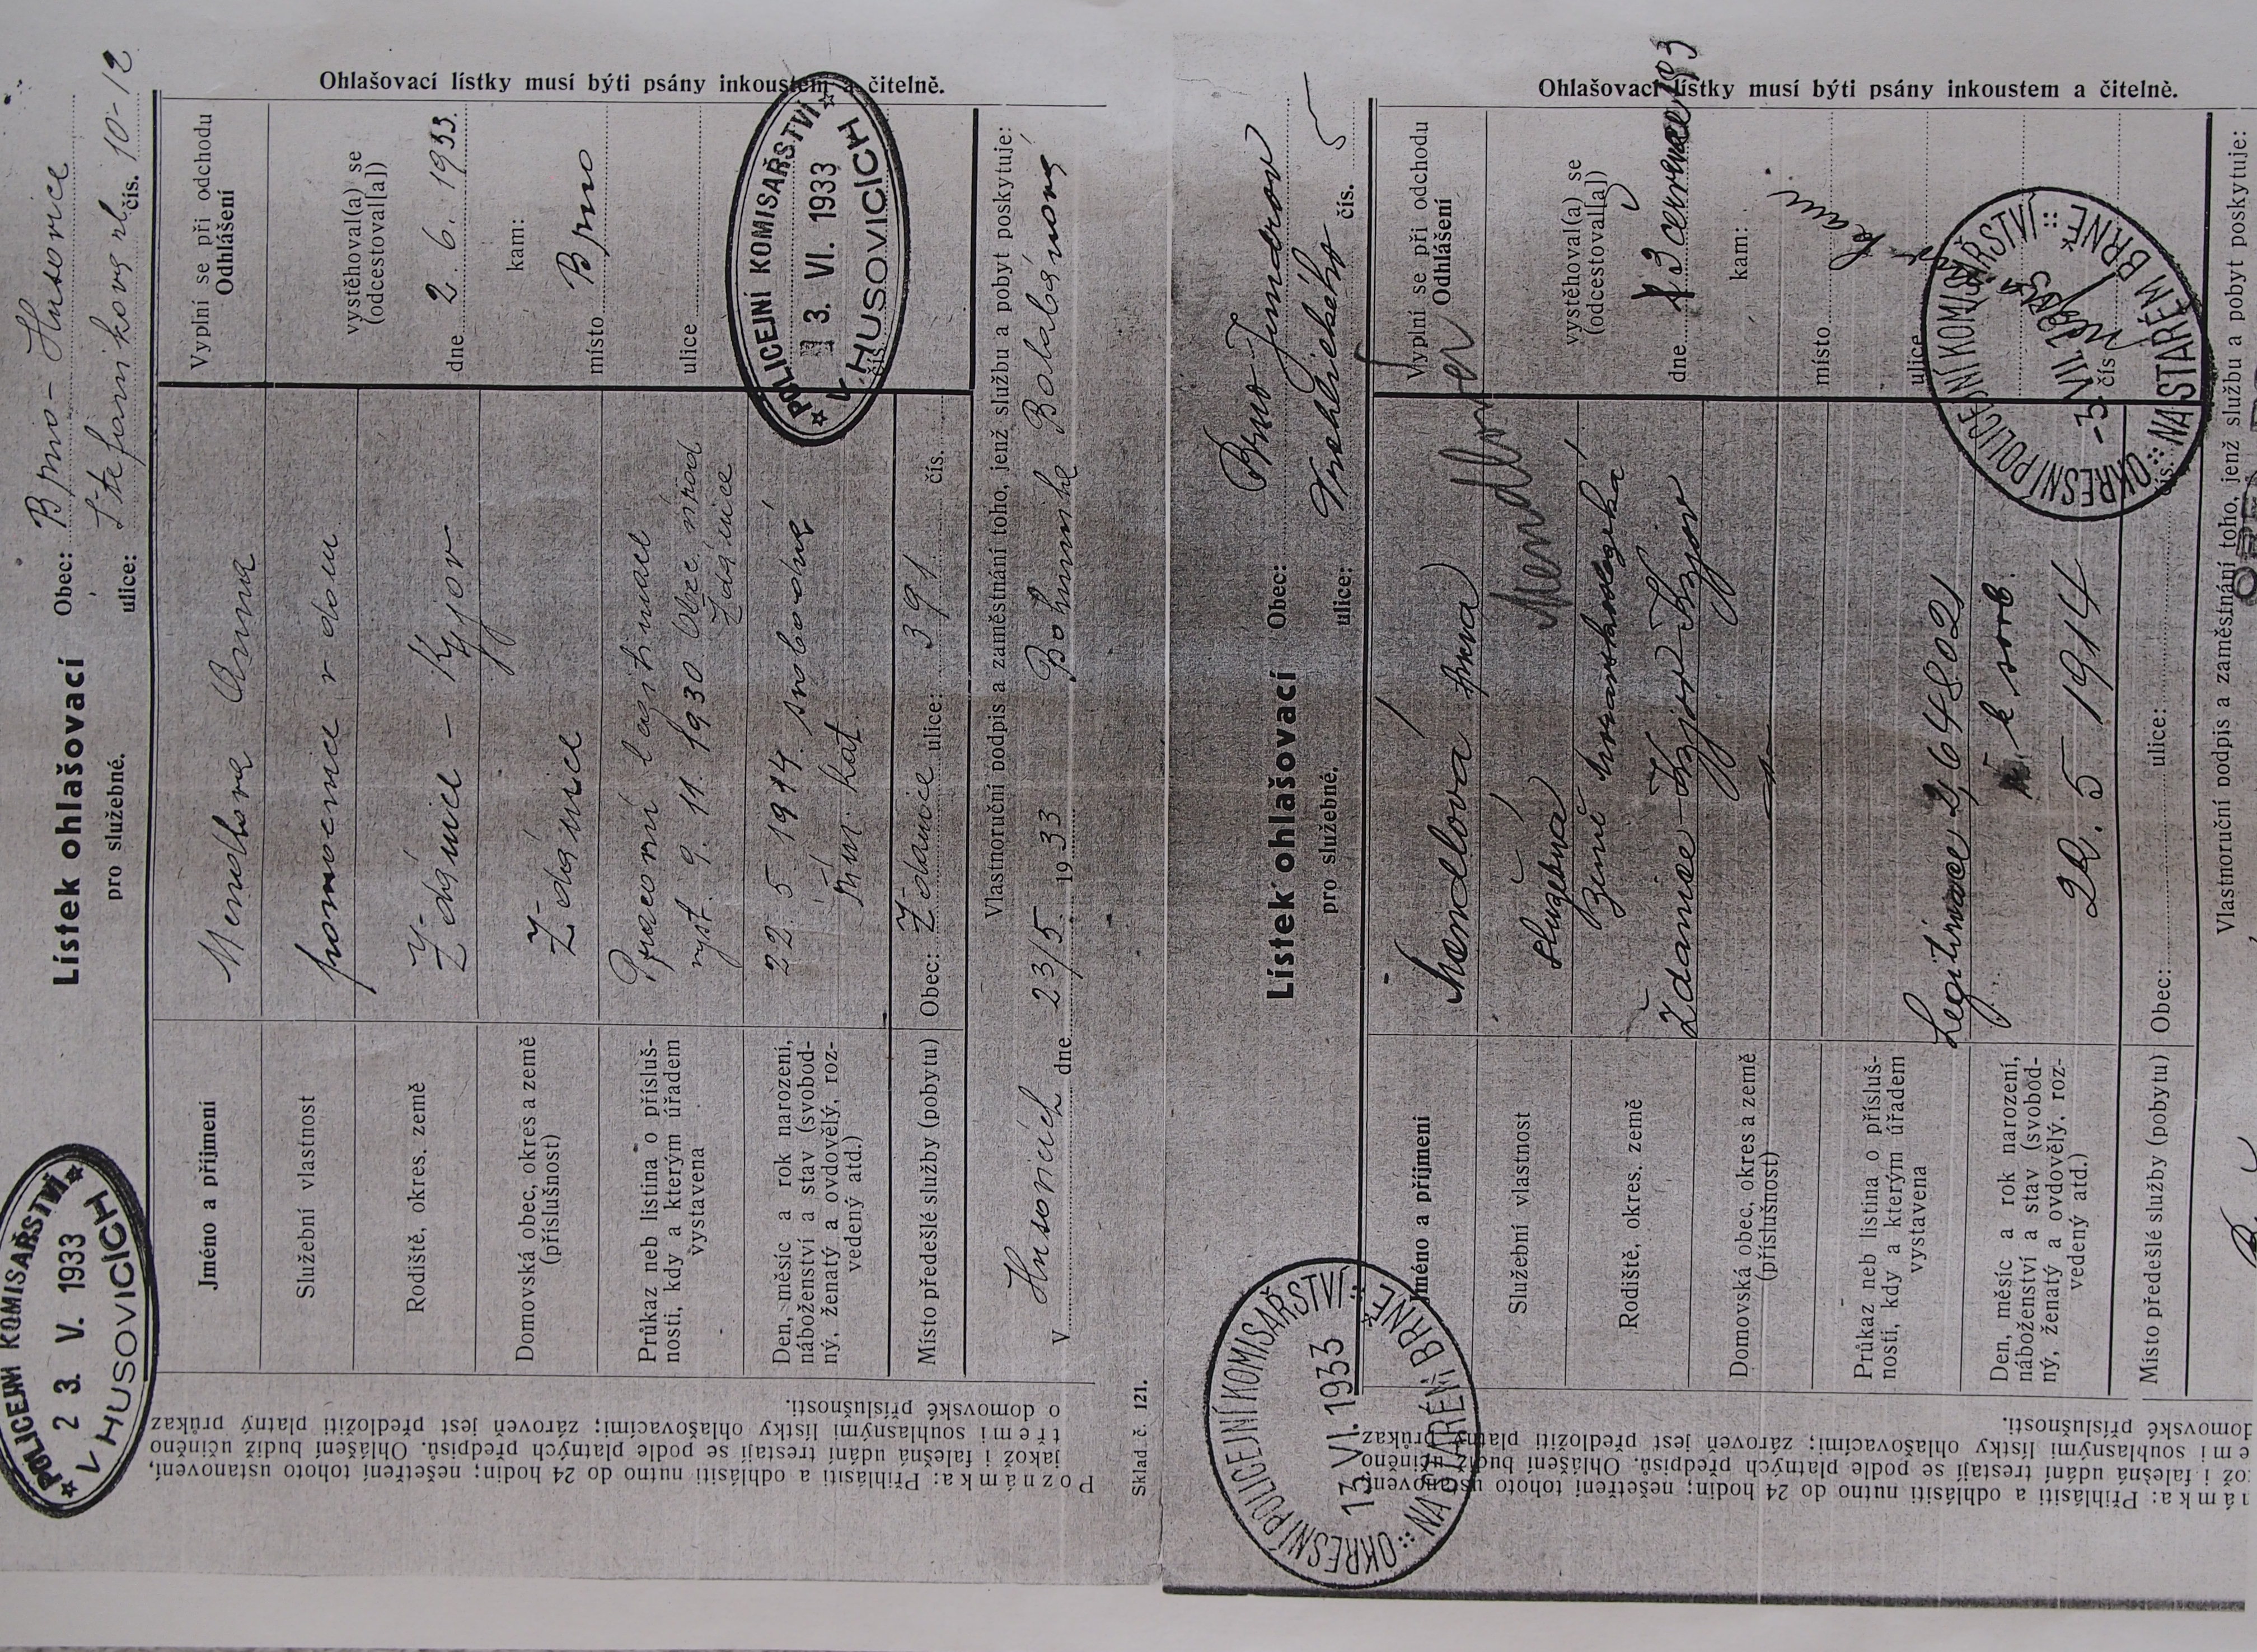 Lístek ohlašovací
pro služebné.
Obec: Brno - Husovice
ulice: Štefanikova ul. čís. 10-12
POLICEJNÍ KOMISAŘSTVÍ
23. V. 1933
V HUSOVICÍCH
Jméno a příjmení
Mendlova Anna
Služební vlastnost
pomocnice v dom
Rodiště, okres, země
Ždánice - Kyjov
Domovská obec, okres a země
(příslušnost)
Ždánice
Průkaz neb listina o přísluš-
nosti, kdy a kterým úřadem
vystavena
Pracovní legitimace
vyst. 9. 11. 1930 Obec. úřad
Ždánice
Den, měsíc a rok narození,
náboženství a stav (svobod-
ný, ženatý a ovdovělý, roz-
vedený atd.)
22. 5. 1914. svobodná
řím. kat.
Místo předešlé služby (pobytu)
Obec: Ždanice ulice: 391 čís.
Vyplní se při odchodu
Odhlášení
vystěhoval(a) se
(odcestoval[a])
dne 2. 6. 1933.
kam:
místo Brno
ulice
čís.
POLICEJNÍ KOMISAŘSTVÍ
3. VI. 1933
V HUSOVICÍCH
Ohlašovací lístky musí býti psány inkoustem a čitelně.
Vlastnoruční podpis a zaměstnání toho, jenž službu a pobyt poskytuje:
V Husovicích dne 23/5. 1933 Bohumila
Poznámka: Přihlásiti a odhlásiti nutno do 24 hodin; nešetření tohoto ustanovení,
jakož i falešná udání trestají se podle platných předpisů. Ohlášení budiž učiněno
třemi souhlasnými lístky ohlašovacími; zároveň jest předložiti platný průkaz
o domovské příslušnosti.
Sklad. č. 121.
Lístek ohlašovací
pro služebné.
Obec: Brno Jundrov
ulice: čís. 5
OKRESNÍ POLICEJNÍ KOMISAŘSTVÍ
13. VI. 1933
NA STARÉM BRNĚ
Jméno a příjmení
Mendlová Anna
Mendl
Služební vlastnost
služebná
Rodiště, okres, země
Země moravskoslezská
Ždanice Kyjov Kyjov
Domovská obec, okres a země
(příslušnost)
Průkaz neb listina o přísluš-
nosti, kdy a kterým úřadem
vystavena
Legitimace
Den, měsíc a rok narození,
náboženství a stav (svobod-
ný, ženatý a ovdovělý, roz-
vedený atd.)
ř. k. svob.
22. 5 1914
Místo předešlé služby (pobytu)
Obec: ulice: čís.
Vyplní se při odchodu
Odhlášení
vystěhoval(a) se
(odcestoval[a])
dne 3 července 1933
kam:
místo
ulice
čís
OKRESNÍ POLICEJNÍ KOMISAŘSTVÍ
-3. VII. 1933
NA STARÉM BRNĚ
Ohlašovací lístky musí býti psány inkoustem a čitelně.
Vlastnoruční podpis a zaměstnání toho, jenž službu a pobyt poskytuje:
námka: Přihlásiti a odhlásiti nutno do 24 hodin; nešetření tohoto ustanovení,
ož i falešná udání trestají se podle platných předpisů. Ohlášení budiž učiněno
emi souhlasnými lístky ohlašovacími; zároveň jest předložiti platný průkaz
domovské příslušnosti.